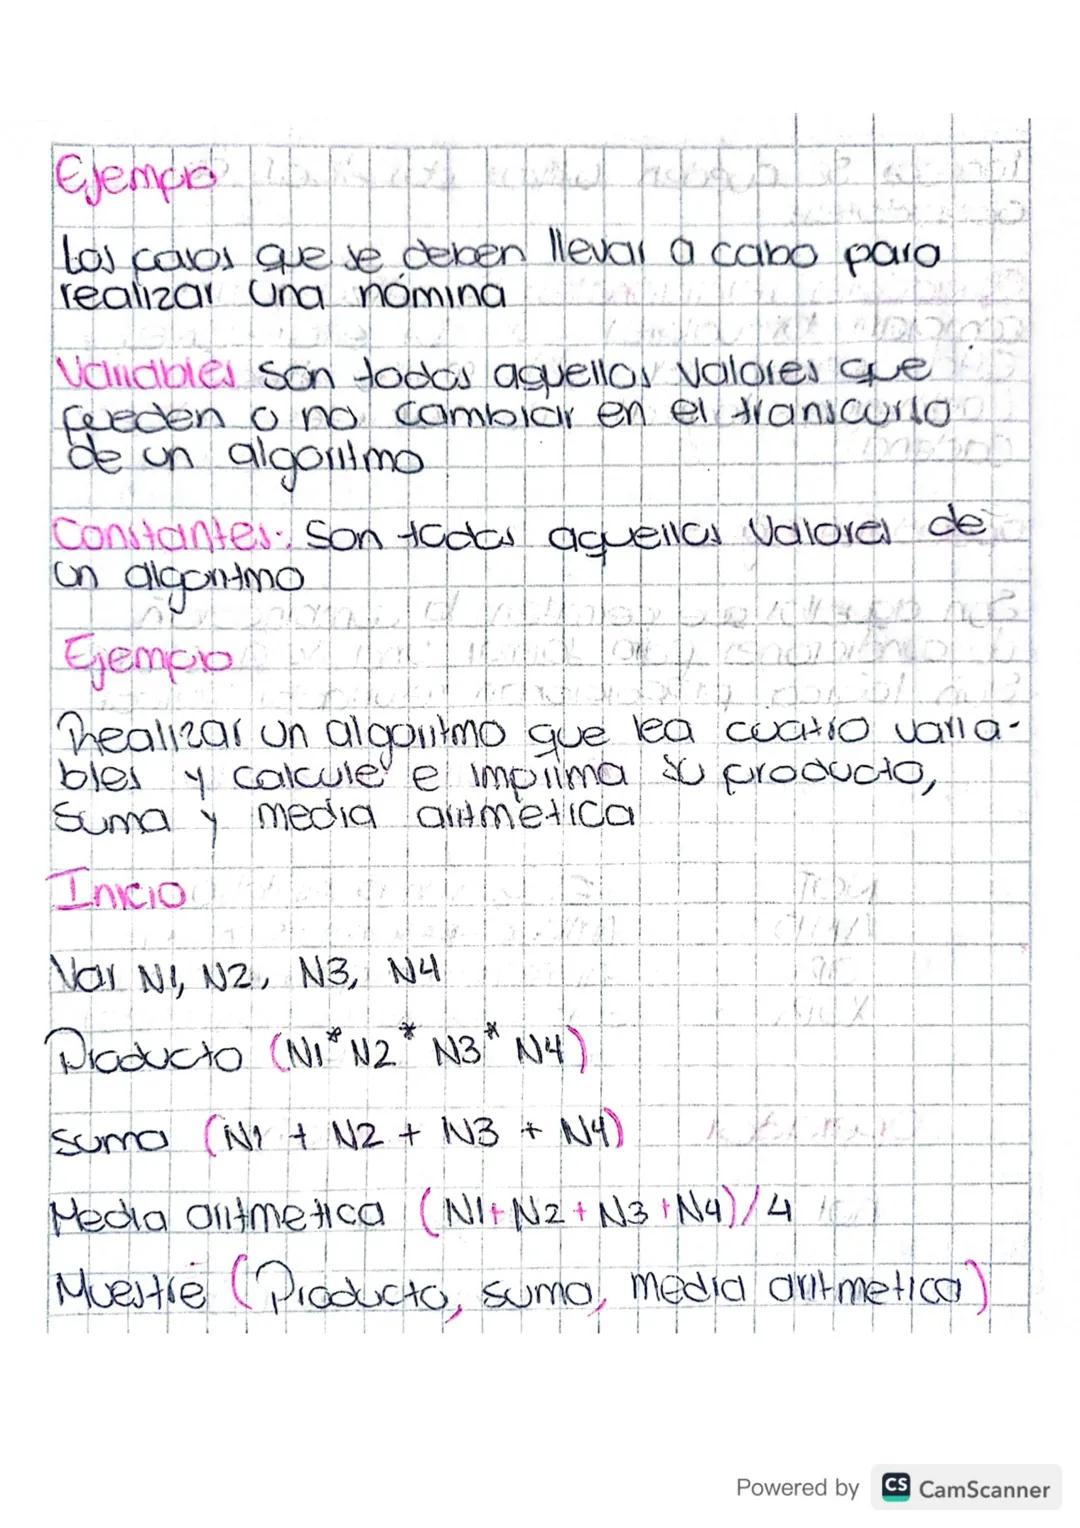 Ejemplo
Los pasos que se deben llevar a cabo para
realizar una nómina
Variables son todos aquellos valores que
pueden o no cambiar en el transcurso
de un algoritmo
Constantes: Son todos aquellos Valores de
un algoritmo
Ejemplo
Realizar un algoritmo que lea cuatro varia-
bles y calcule e imprima su producto,
Suma y media aritmetica
Inicio
Var N1, N2, N3, N4
Producto (N1 * N2 * N3 * N4)
suma (N1 + N2 + N3 + N4)
Media aritmetica (N1+N2+N3+N4)/4
Muestre (Producto, suma, media aritmetica)
Powered by CS CamScanner